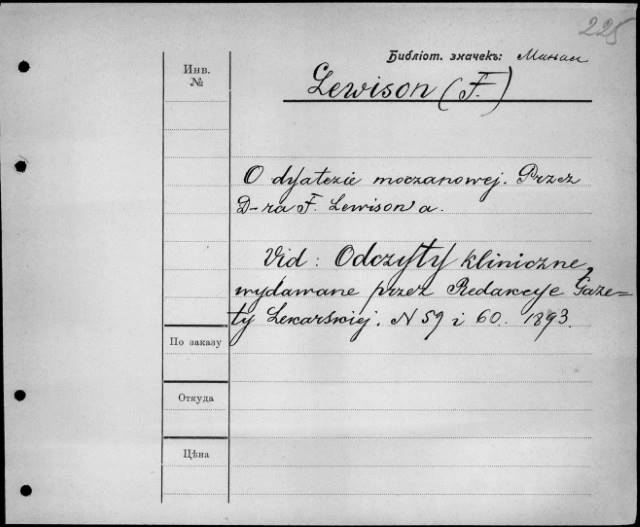 225
Библіот. значекъ:
Инв. №
Lewison (F.)
O dyatezie moczanowej. Przez
D-ra F. Lewison'a.
Vid: Odczyty kliniczne,
wydawane przez Redakcye Gaze-
ty Lekarskiej. N 59 i 60. 1893.
По заказу
Откуда
Цѣна